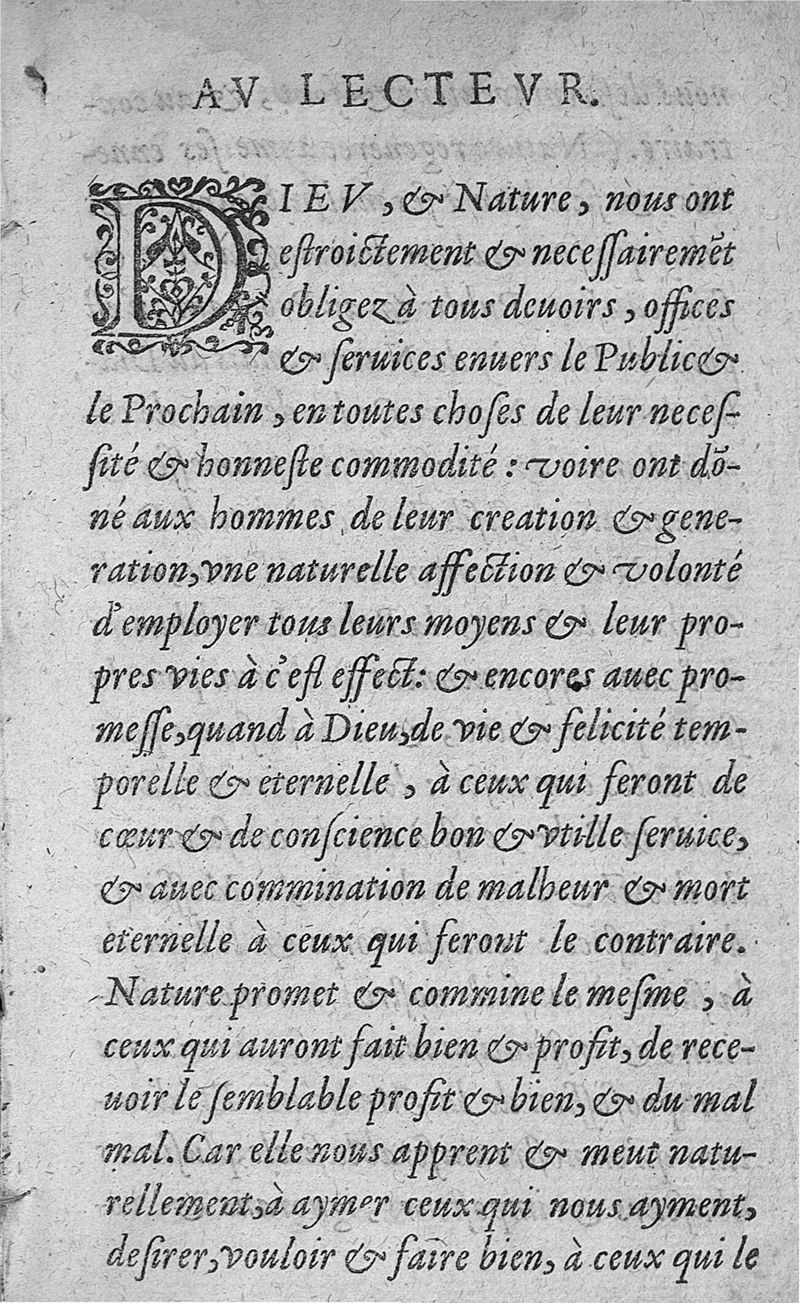 AV LECTEVR.
DIEV, & Nature, nous ont
eſtroictement & neceſſairemēt
obligez à tous deuoirs, offices
& ſeruices enuers le Public &
le Prochain, en toutes choſes de leur neceſ-
ſité & honneſte commodité : voire ont dō-
né aux hommes de leur creation & gene-
ration, vne naturelle affection & volonté
d'employer tous leurs moyens & leur pro-
pres vies à c'eſt effect: & encores auec pro-
meſſe, quand à Dieu, de vie & felicité tem-
porelle & eternelle, à ceux qui feront de
cœur & de conſcience bon & vtille ſeruice,
& auec commination de malheur & mort
eternelle à ceux qui feront le contraire.
Nature promet & commine le meſme, à
ceux qui auront fait bien & profit, de rece-
uoir le ſemblable profit & bien, & du mal
mal. Car elle nous apprent & meut natu-
rellement, à aymer ceux qui nous ayment,
deſirer, vouloir & faire bien, à ceux qui le